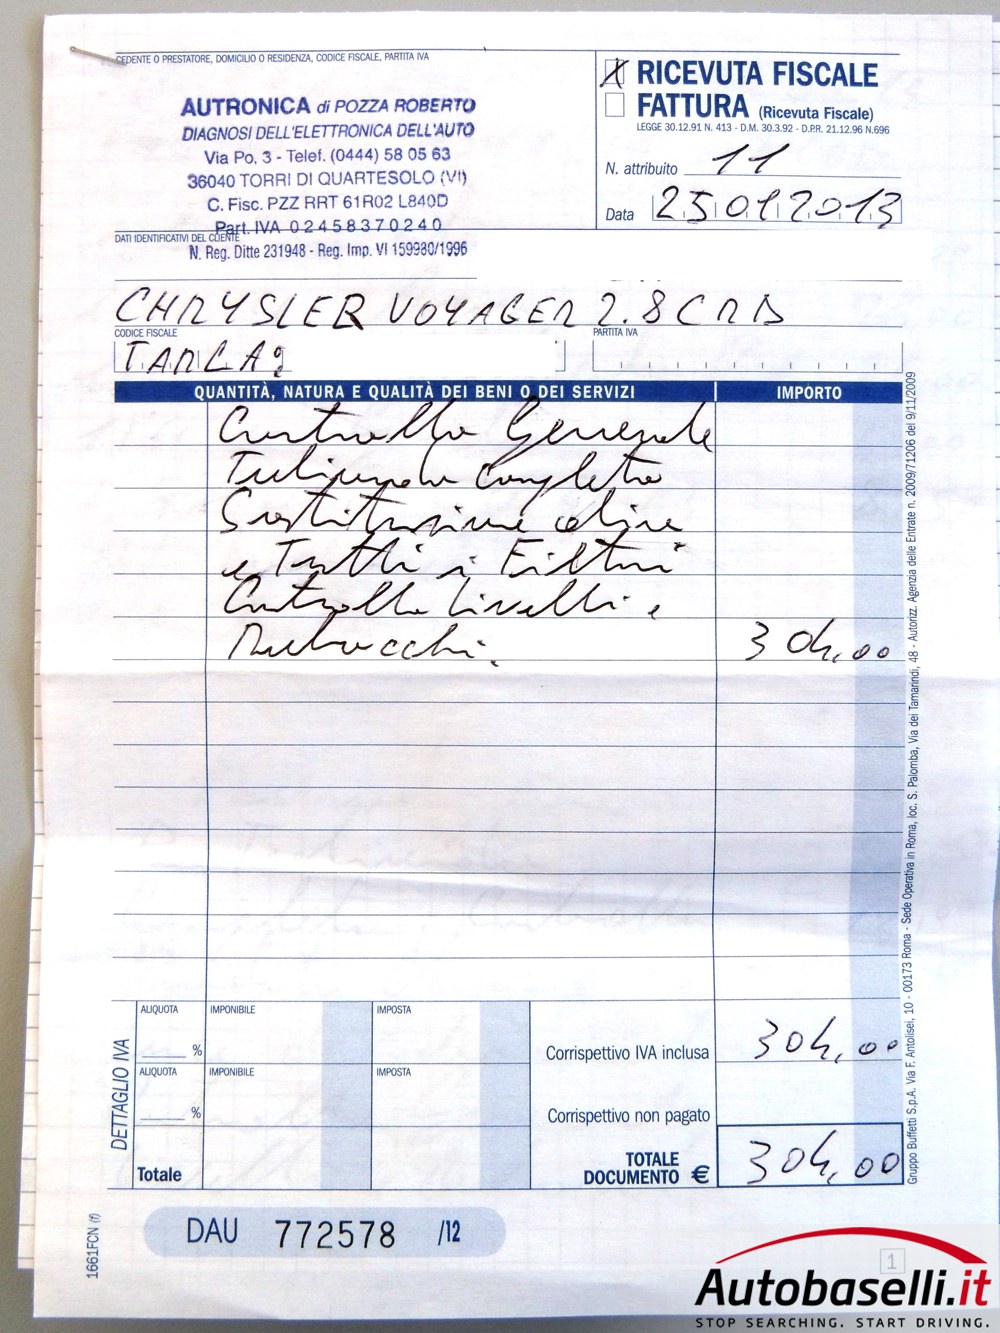 CEDENTE O PRESTATORE, DOMICILIO O RESIDENZA, CODICE FISCALE, PARTITA IVA
AUTRONICA di POZZA ROBERTO
DIAGNOSI DELL'ELETTRONICA DELL'AUTO
Via Po, 3 - Telef. (0444) 58 05 63
36040 TORRI DI QUARTESOLO (VI)
C. Fisc. PZZ RRT 61R02 L840D
Part. IVA 02458370240
N. Reg. Ditte 231948 - Reg. Imp. VI 159980/1996
X RICEVUTA FISCALE
FATTURA (Ricevuta Fiscale)
LEGGE 30.12.91 N. 413 - D.M. 30.3.92 - D.P.R. 21.12.96 N.696
N. attribuito 11
Data 25 01 2013
DATI IDENTIFICATIVI DEL CLIENTE
CHRYSLER VOYAGER 2.8 CRD
CODICE FISCALE
PARTITA IVA
TARGA:
QUANTITÀ, NATURA E QUALITÀ DEI BENI O DEI SERVIZI IMPORTO
Controllo Generale
Tagliando Completo
Sostituzione olio e
e Tutti i Filtri
Controllo livelli e
304,00
ALIQUOTA IMPONIBILE IMPOSTA
% Corrispettivo IVA inclusa 304,00
ALIQUOTA IMPONIBILE IMPOSTA
% Corrispettivo non pagato
DETTAGLIO IVA
Totale TOTALE DOCUMENTO € 304,00
DAU 772578 /12
1661FCN (f)
Gruppo Buffetti S.p.A. Via F. Antolisei, 10 - 00173 Roma - Sede Operativa in Roma, loc. S. Palomba, Via dei Tamarindi, 48 - Autorizz. Agenzia delle Entrate n. 2009/71206 del 9/11/2009
1
Autobaselli.it
STOP SEARCHING. START DRIVING.